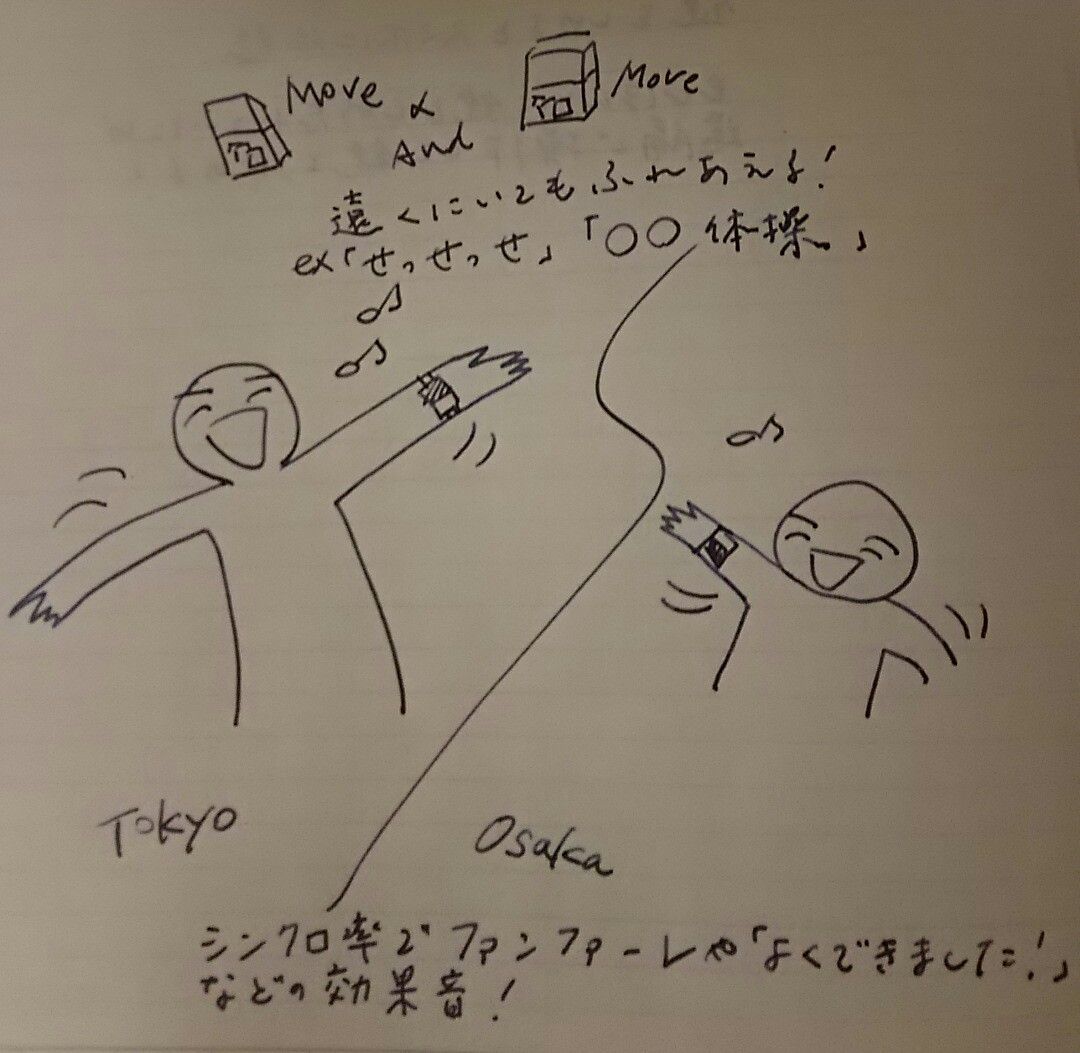 Move & Move
And
遠くにいてもふれあえる!
ex「せっせっせ」「〇〇体操。」
Tokyo
Osaka
シンクロ率でファンファーレや「よくできました!」
などの効果音!